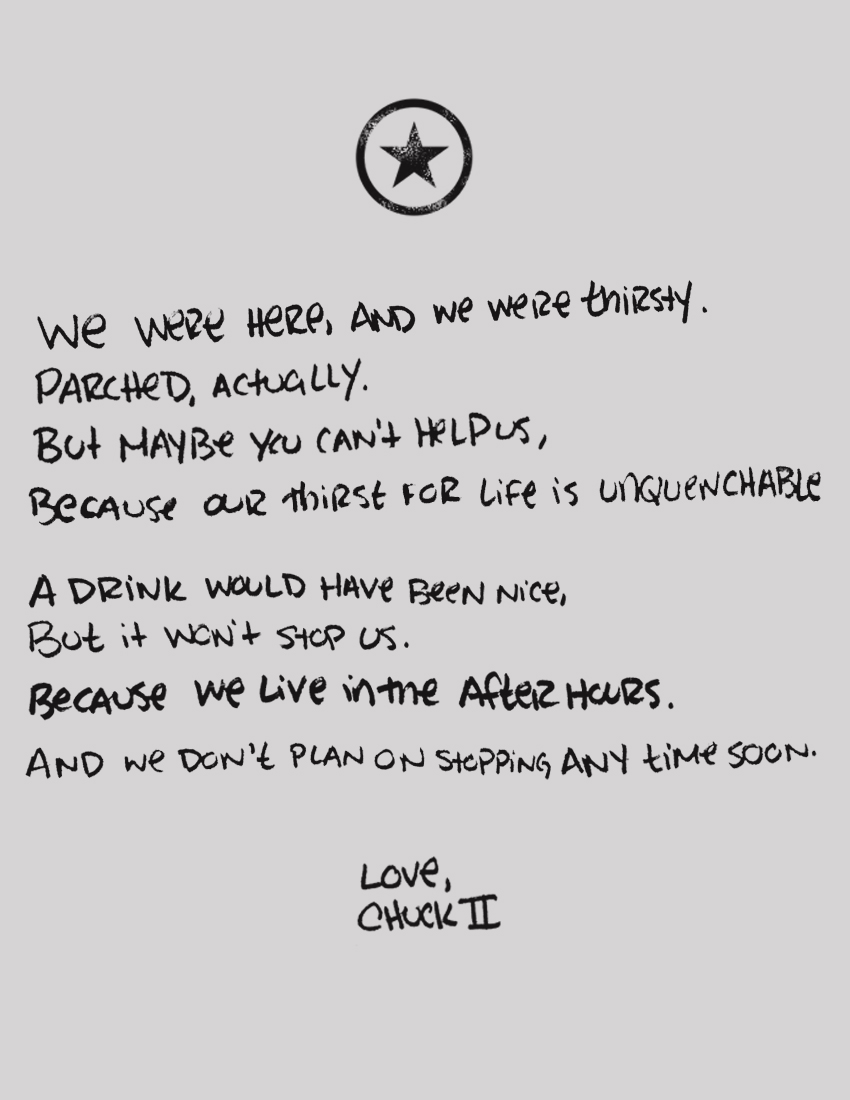 We WeRE HeRe, AND we weRe thiRsty.
PARCHeD, ActuALLY.
But MAYBe you CAN't HeLP us,
BeCAUSe ouR thiRst FOR Life is uNQUeNCHABLe
A DRiNK WOULD HAVe BeeN Nice,
But it WON't StOP US.
BeCAUSe We Live in the AfteR HOURS.
AND we DON't PLAN ON StOPPiNG ANY tiMe SOON.
Love,
CHUCK II